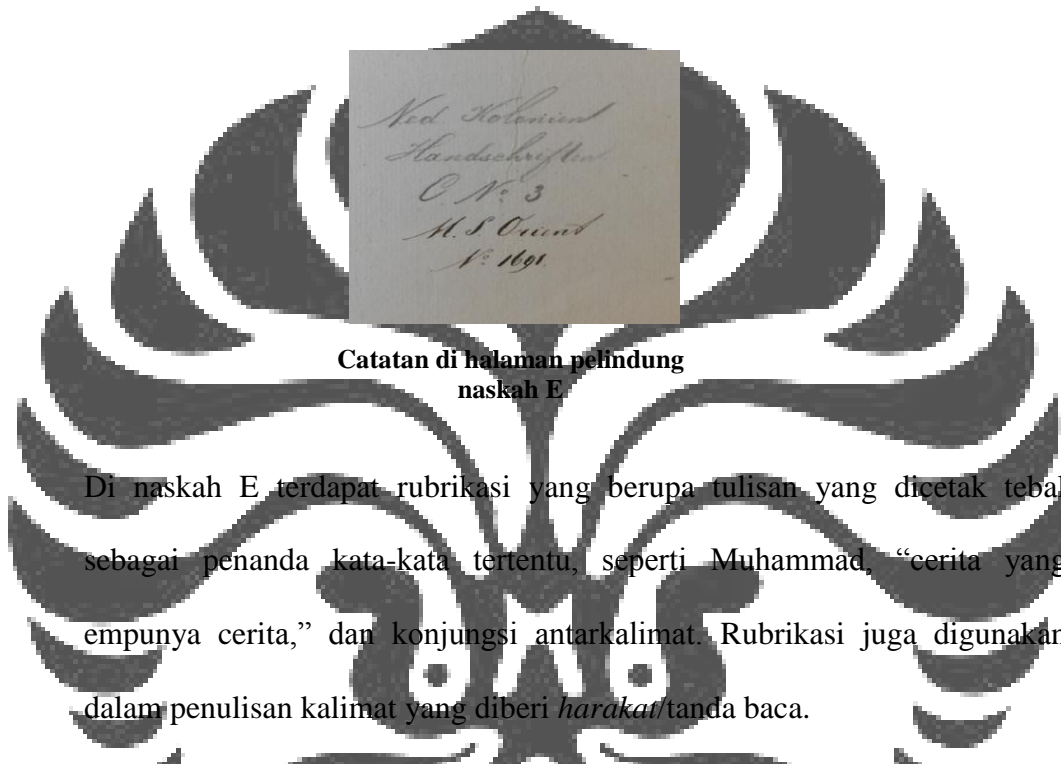 Ned. Kolonien
Handschriften
C Nº 3
M. S. Orient
Nº 1691
Catatan di halaman pelindung
naskah E
Di naskah E terdapat rubrikasi yang berupa tulisan yang dicetak tebal
sebagai penanda kata-kata tertentu, seperti Muhammad, “cerita yang
empunya cerita,” dan konjungsi antarkalimat. Rubrikasi juga digunakan
dalam penulisan kalimat yang diberi harakat/tanda baca.